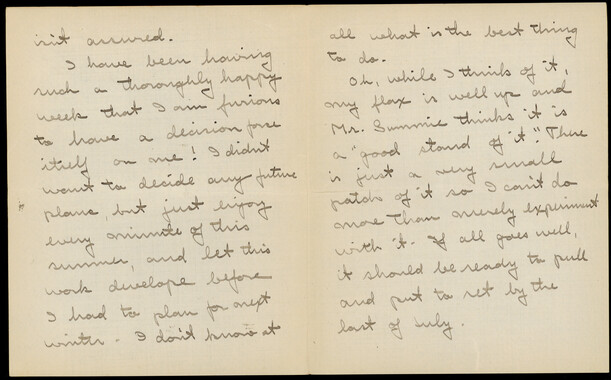 isn't assured.
I have been having
such a thoroughly happy
week that I am furious
to have a decision force
itself on me! I didn't
want to decide any future
plans, but just enjoy
every minute of this
summer, and let this
work develope before
I had to plan for next
winter - I don't know at
all what is the best thing
to do.
Oh, while I think of it,
my flax is well up and
Mr. Summie thinks it is
a "good stand of it." There
is just a very small
patch of it so I can't do
more than merely experiment
with it. If all goes well,
it should be ready to pull
and put to ret by the
last of July.